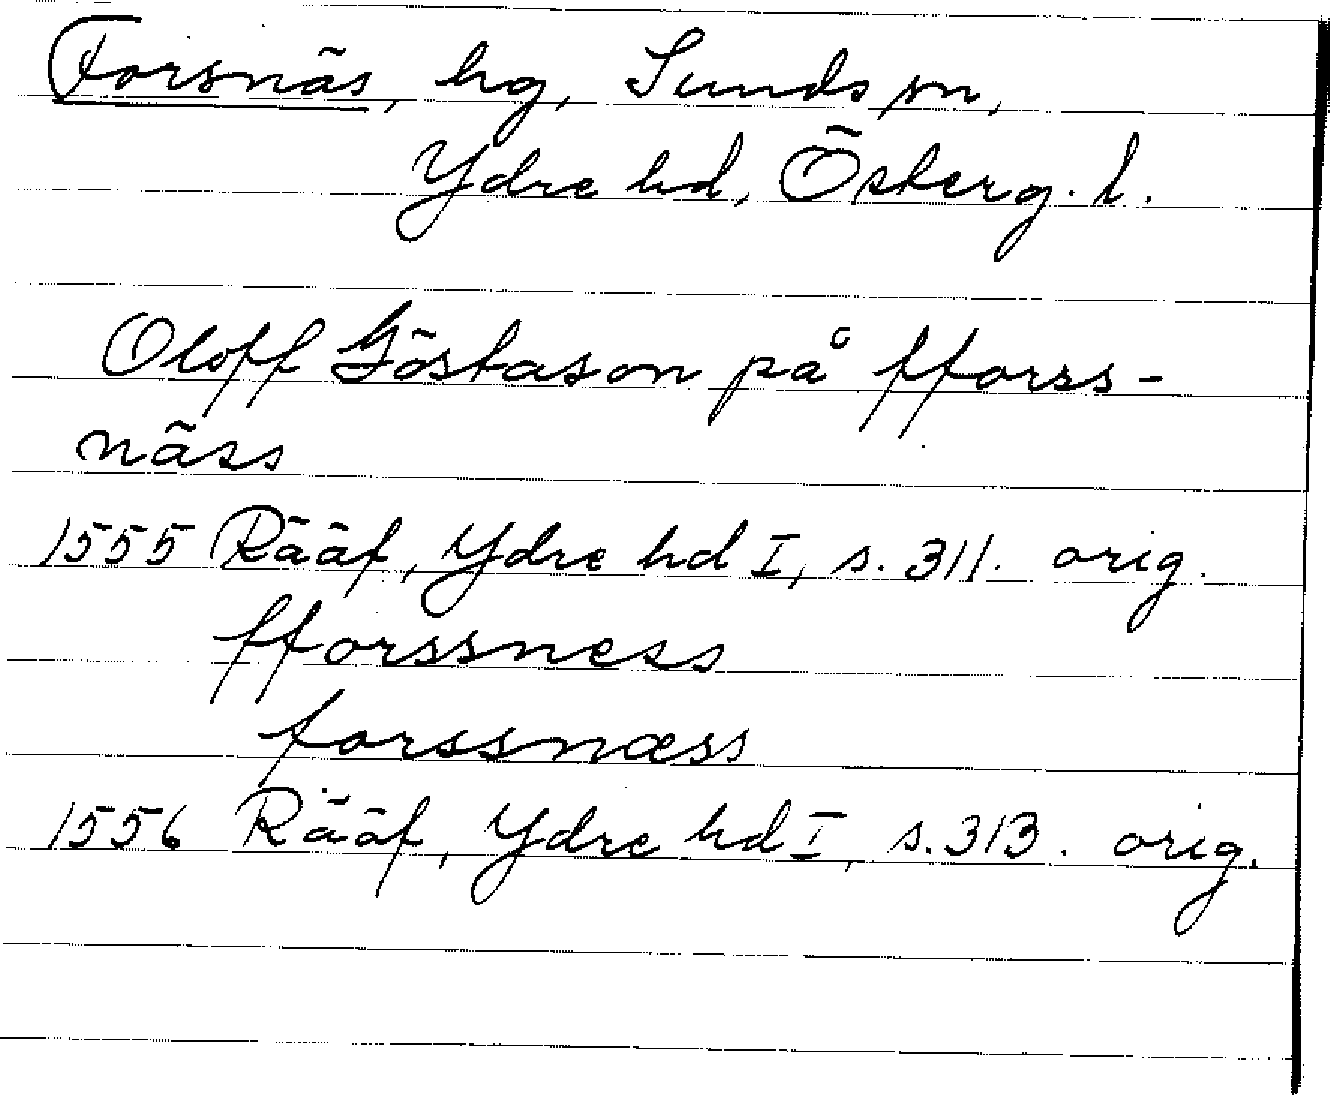 Forsnäs, hg, Sunds sn,
Ydre hd, Österg. l.
Oloff Göstason på fforss-
näss
1555 Rääf, Ydre hd I, s. 311. orig.
fforssness
forssnæss
1556 Rääf, Ydre hd I, s. 313. orig.